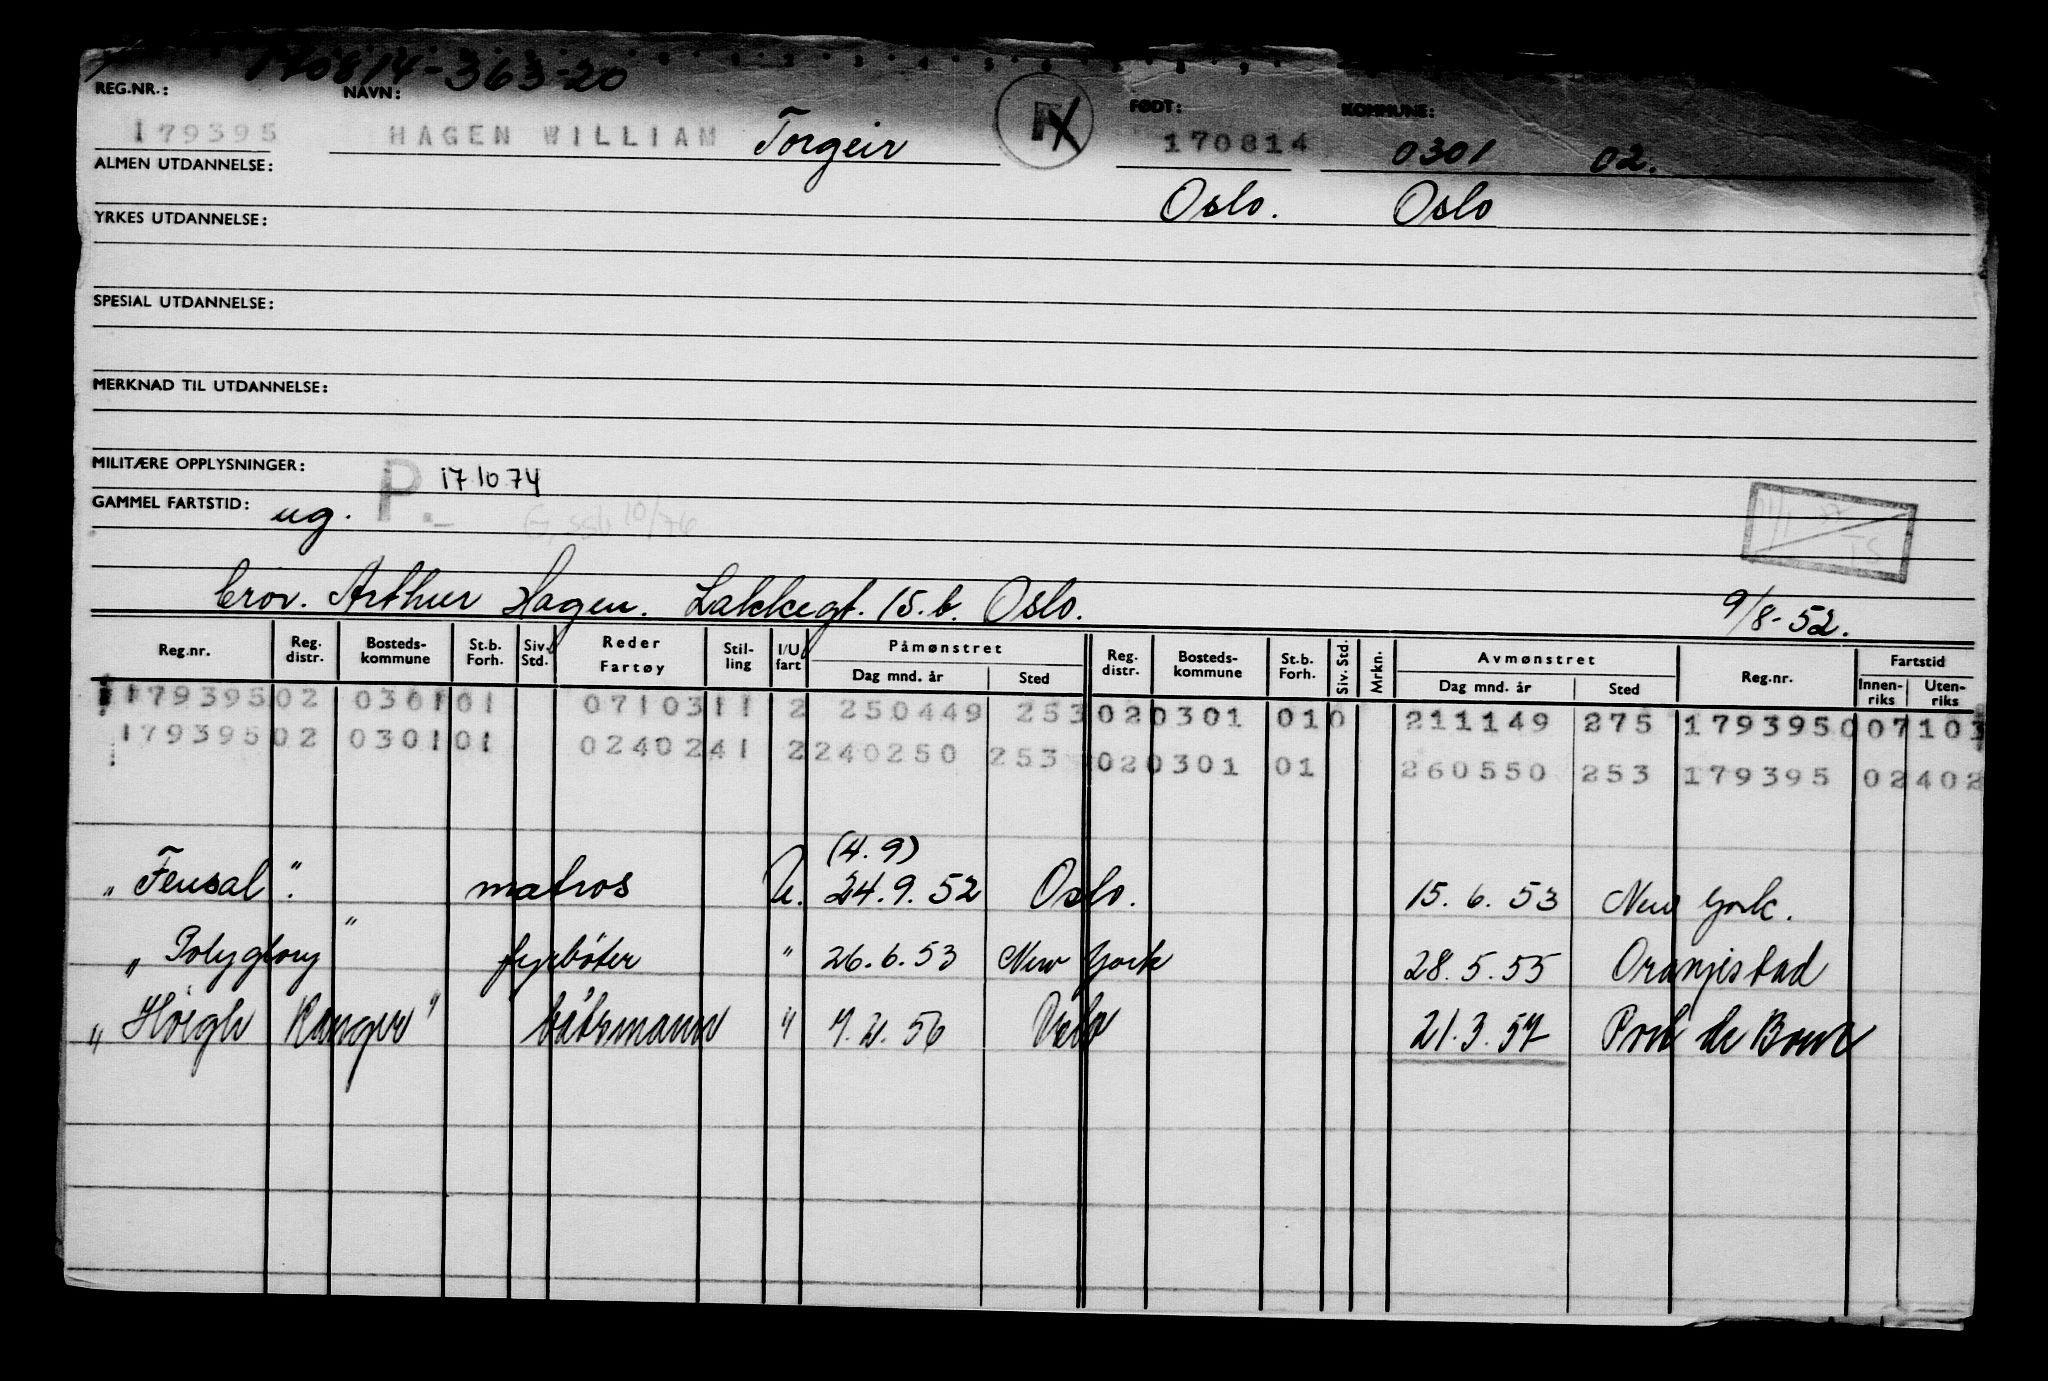 170814-363-20
REG.NR.: NAVN: FØDT: KOMMUNE:
179395 HAGEN WILLIAM Torgeir 170814 0301 02.
ALMEN UTDANNELSE:
Oslo. Oslo
YRKES UTDANNELSE:
SPESIAL UTDANNELSE:
MERKNAD TIL UTDANNELSE:
MILITÆRE OPPLYSNINGER: P. 17 10 74
GAMMEL FARTSTID: ug.
bror. Arthur Hagen. Lakkegt. 15.b. Oslo. 9/8-52.
Reg.nr. Reg. distr. Bosteds-kommune St.b. Forh. Siv. Std. Reder Fartøy Stil-ling I/U fart Påmønstret Dag mnd. år Sted Reg. distr. Bosteds-kommune St.b. Forh. Siv. Std. Mrkn. Avmønstret Dag mnd. år Sted Reg.nr. Fartstid Innen-riks Uten-riks
179395 02 0301 01 07103 11 2 250449 253 02 0301 01 0 211149 275 179395 0 07103
179395 02 0301 01 02402 41 2 240250 253 02 0301 01 260550 253 179395 02402
(4.9)
"Fensal". matros U. 24.9.52 Oslo. 15.6.53 New York.
"Polyglory" fyrbøter " 26.6.53 New York 28.5.55 Oranjestad
"Høegh Ranger" båtsmann " 21.3.57 Port de Bouc